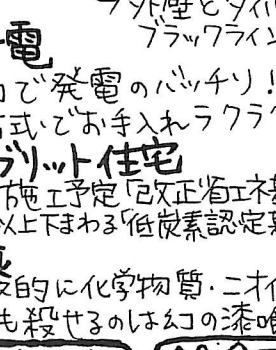 ラックライン
電
で発電のバッチリ!
式でお手入れラクラ
ブリット住宅
施工予定「改正省エネ基
以上下まわる「低炭素認定
的に化学物質・ニオイ
も殺せるのは幻の漆喰